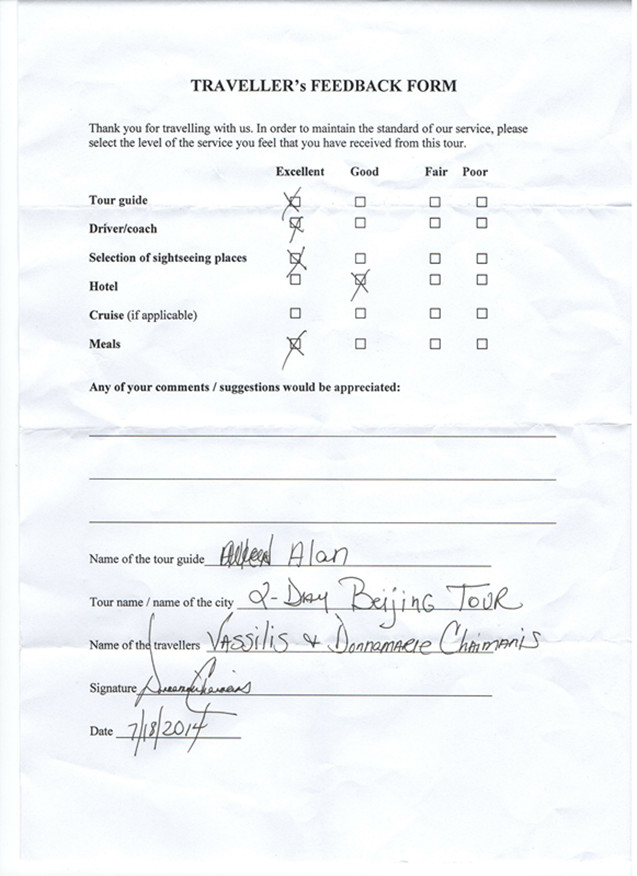 TRAVELLER's FEEDBACK FORM
Thank you for travelling with us. In order to maintain the standard of our service, please
select the level of the service you feel that you have received from this tour.
Excellent Good Fair Poor
Tour guide
Driver/coach
Selection of sightseeing places
Hotel
Cruise (if applicable)
Meals
Any of your comments / suggestions would be appreciated:
Name of the tour guide Alan
Tour name / name of the city 2-Day Beijing Tour
Name of the travellers Vassilis & Donnamarie Chaimanis
Signature
Date 7/18/2014